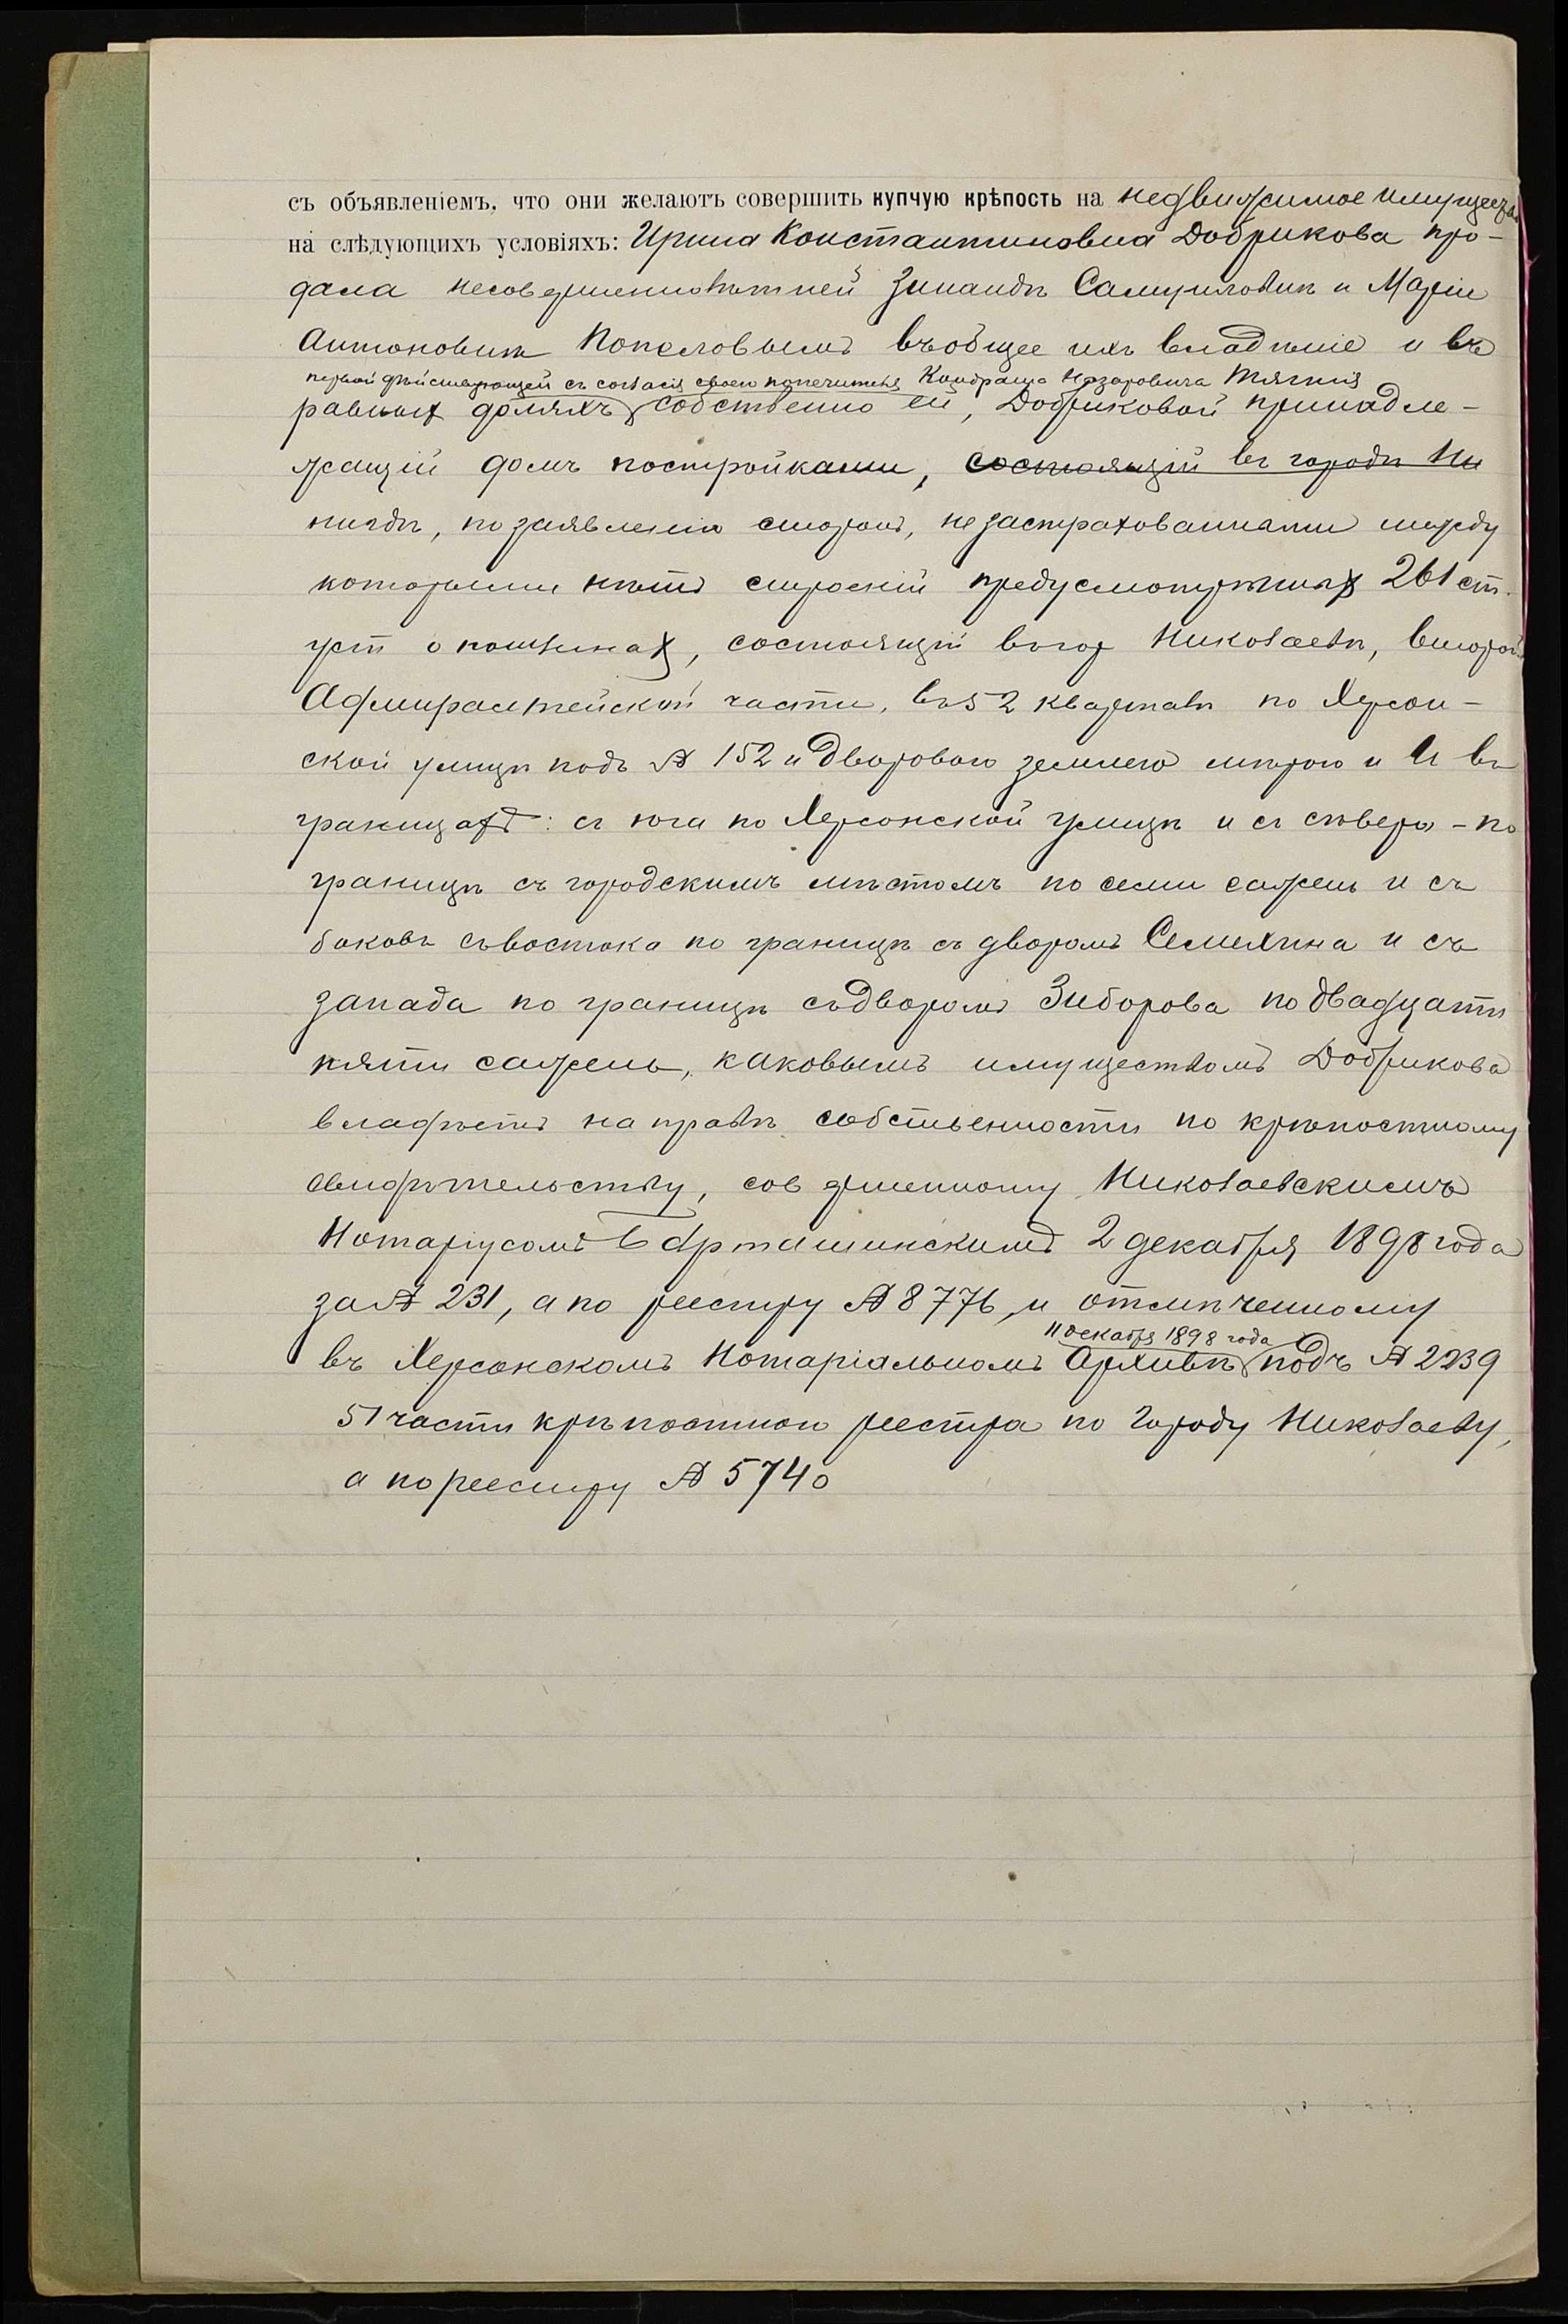 съ объявленіемъ, что они желаютъ совершить купчую крѣпость на недвижимое имущество
на слѣдующихъ условіяхъ: Ирина Константиновна Добрикова про-
дала несовершеннолѣтней Зинаидѣ Самуиловнѣ и Маріи
Антоновнѣ Пополовымъ въ общее ихъ владѣніе и въ
первой дѣйствующей съ согласія своего попечителя Кондрата Назаровича Тягнія
равныхъ доляхъ собственно ей, Добриковой принадле-
жащій домъ постройками, состоящій въ городѣ Ни
нигдѣ, по заявленію сторонъ, не застрахованными между
которыми нѣтъ строеній предусмотрѣнныхъ 261 ст.
уст о пошлинах, состоящій въ гор Николаевѣ, второй
Адмиралтейской части, въ 52 кварталѣ по Херсон-
ской улицѣ подъ № 152 и дворовою землею мѣрою и въ
границахъ: съ юга по Херсонской улицѣ и съ сѣвера - по
границѣ съ городскимъ мѣстомъ по семи сажень и съ
боковъ съ востока по границѣ съ дворомъ Семехина и съ
запада по границѣ съ дворомъ Зиборова по двадцати
пяти сажень, каковымъ имуществомъ Добрикова
владѣетъ на правѣ собственности по крѣпостному
свидѣтельству, совершенному Николаевскимъ
Нотаріусомъ Барташинскимъ 2 декабря 1898 года
за № 231, а по реестру № 8776, и отмѣченному
11 декабря 1898 года
въ Херсонскомъ Нотаріальномъ Архивѣ подъ № 2239
51 части крѣпостнои реестра по городу Николаеву,
а по реестру № 5740